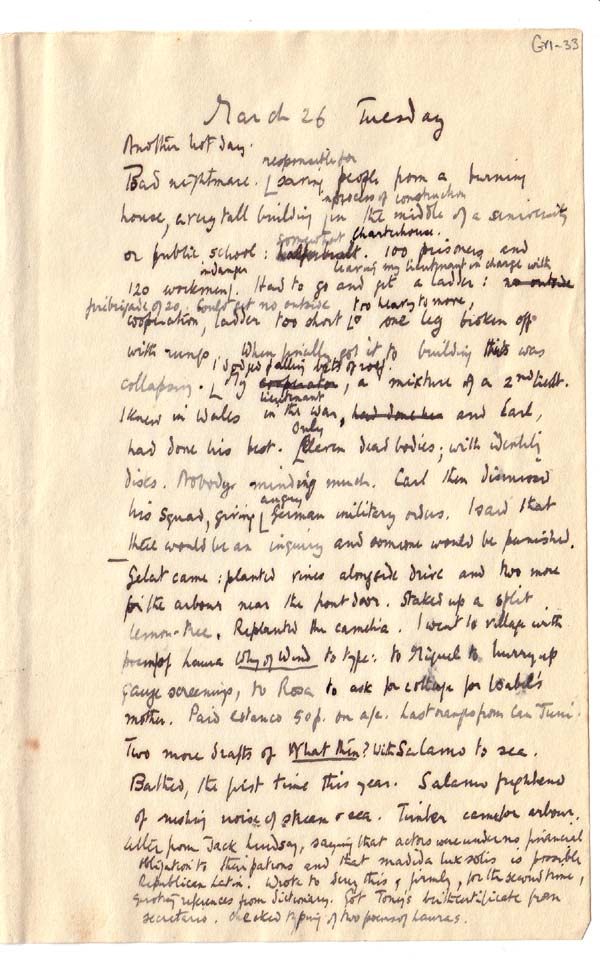 GM-33
March 26 Tuesday
Another hot day.
responsible for
Bad nightmare. [Saving people from a burning
in process of construction
house, a very tall building, in the middle of a university
somewhat Charterhouse.
or public school : 100 prisoners and
in danger leaving my lieutenant in charge with
120 workmen. Had to go and get a ladder : no outside
fire brigade of 20. Could get no outside too heavy to move,
cooperation, ladder too short & one leg broken off
with rungs. When finally got it to building this was
I dodged falling bits of roof.
collapsing. [My cooperator, a mixture of a 2nd Lieut.
lieutenant
I knew in Wales in the war, and Earl,
only
had done his best. [Eleven dead bodies; with identity
discs. Nobody minding much. Earl then dismissed
angry
his squad, giving [German military orders. I said that
there would be an inquiry and someone would be punished.
Gelat came : planted vines alongside drive and two more
for the arbour near the front door. Staked up a split
lemon-tree. Replanted the camelia. I went to village with
poem of Laura Why of Wind to type : to Miguel to hurry up
gauze screenings, to Rosa to ask for cottage for Isabel's
mother. Paid estanco 50 p. on a/c. Last oranges from Can Torri.
Two more drafts of What then? With Salamo to sea.
Bathed, the first time this year. Salamo frightened
of rushing noise of stream & sea. Timber came for arbour.
Letter from Jack Lindsay, saying that actors were under no financial
obligation to their patrons and that madida lux solis is possible
Republican Latin. Wrote to deny this, firmly, for the second time,
quoting references from dictionary. Got Tony's birth certificate from
secretario. Checked typing of two poems of Laura's.